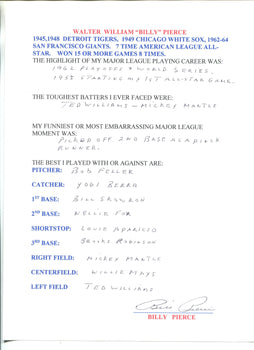 WALTER WILLIAM "BILLY" PIERCE
1945,1948 DETROIT TIGERS, 1949 CHICAGO WHITE SOX, 1962-64
SAN FRANCISCO GIANTS. 7 TIME AMERICAN LEAGUE ALL-
STAR. WON 15 OR MORE GAMES 8 TIMES.
THE HIGHLIGHT OF MY MAJOR LEAGUE PLAYING CAREER WAS:
1962 PLAYOFFS & WORLD SERIES.
STARTING MY 1ST ALL-STAR GAME.
THE TOUGHEST BATTERS I EVER FACED WERE:
TED WILLIAMS - MICKEY MANTLE
MY FUNNIEST OR MOST EMBARRASSING MAJOR LEAGUE
MOMENT WAS:
PICKED OFF 2ND BASE AS A PINCH
RUNNER.
THE BEST I PLAYED WITH OR AGAINST ARE:
PITCHER: BOB FELLER
CATCHER: YOGI BERRA
1ST BASE: BILL SKOWRON
2ND BASE: NELLIE FOX
SHORTSTOP: LOUIE APARICIO
3RD BASE: BROOKS ROBINSON
RIGHT FIELD: MICKEY MANTLE
CENTERFIELD: WILLIE MAYS
LEFT FIELD TED WILLIAMS
Billy Pierce
BILLY PIERCE